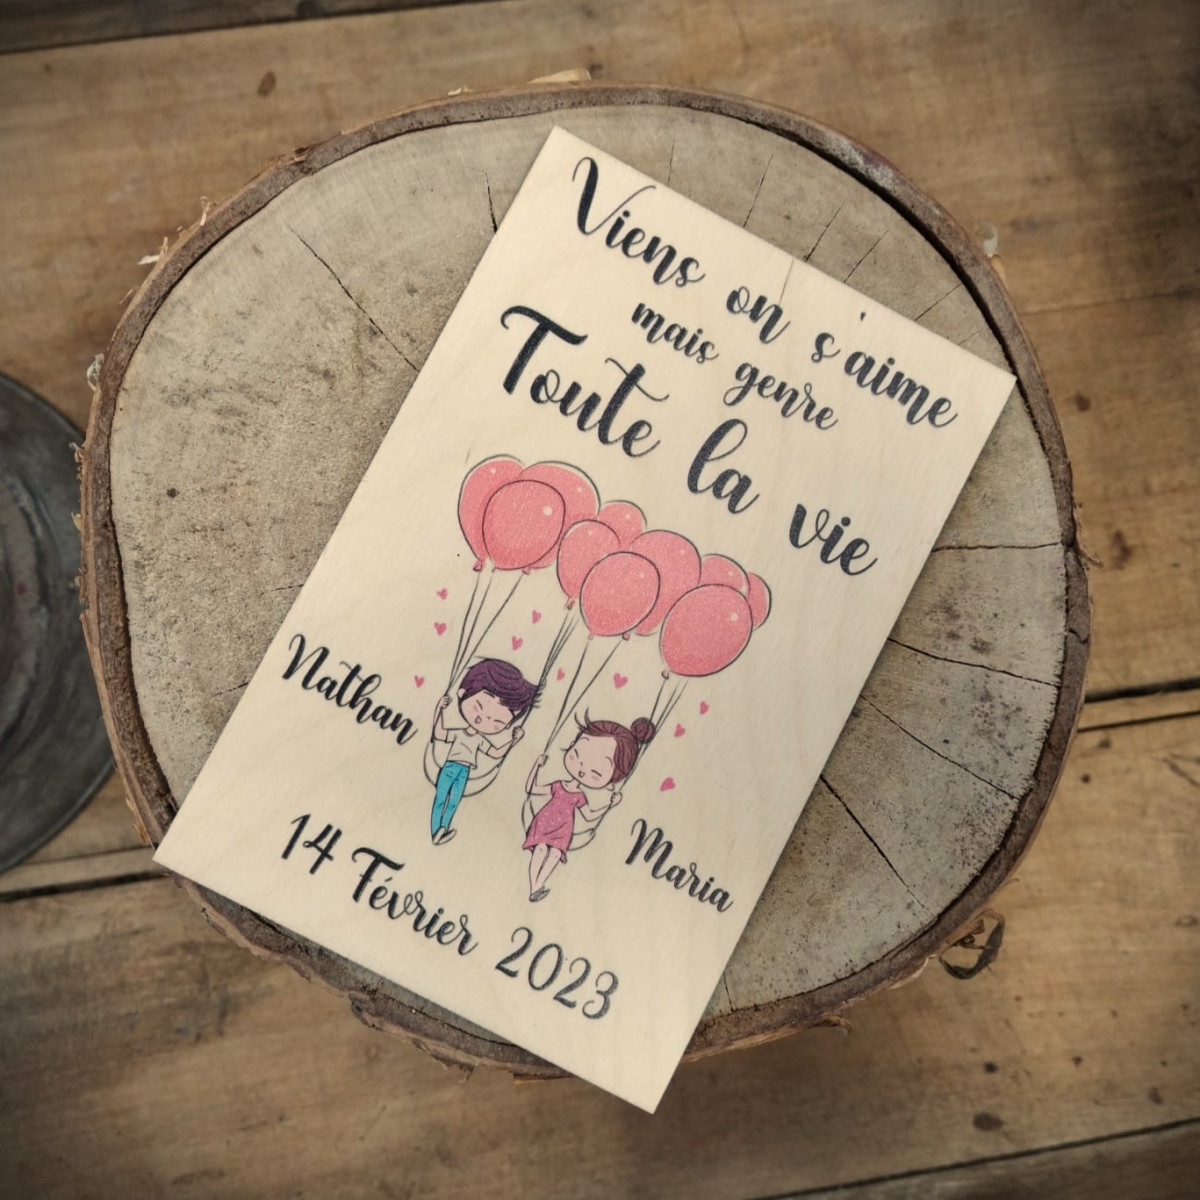 Viens on s'aime
mais genre
Toute la vie
Nathan
Maria
14 Février 2023